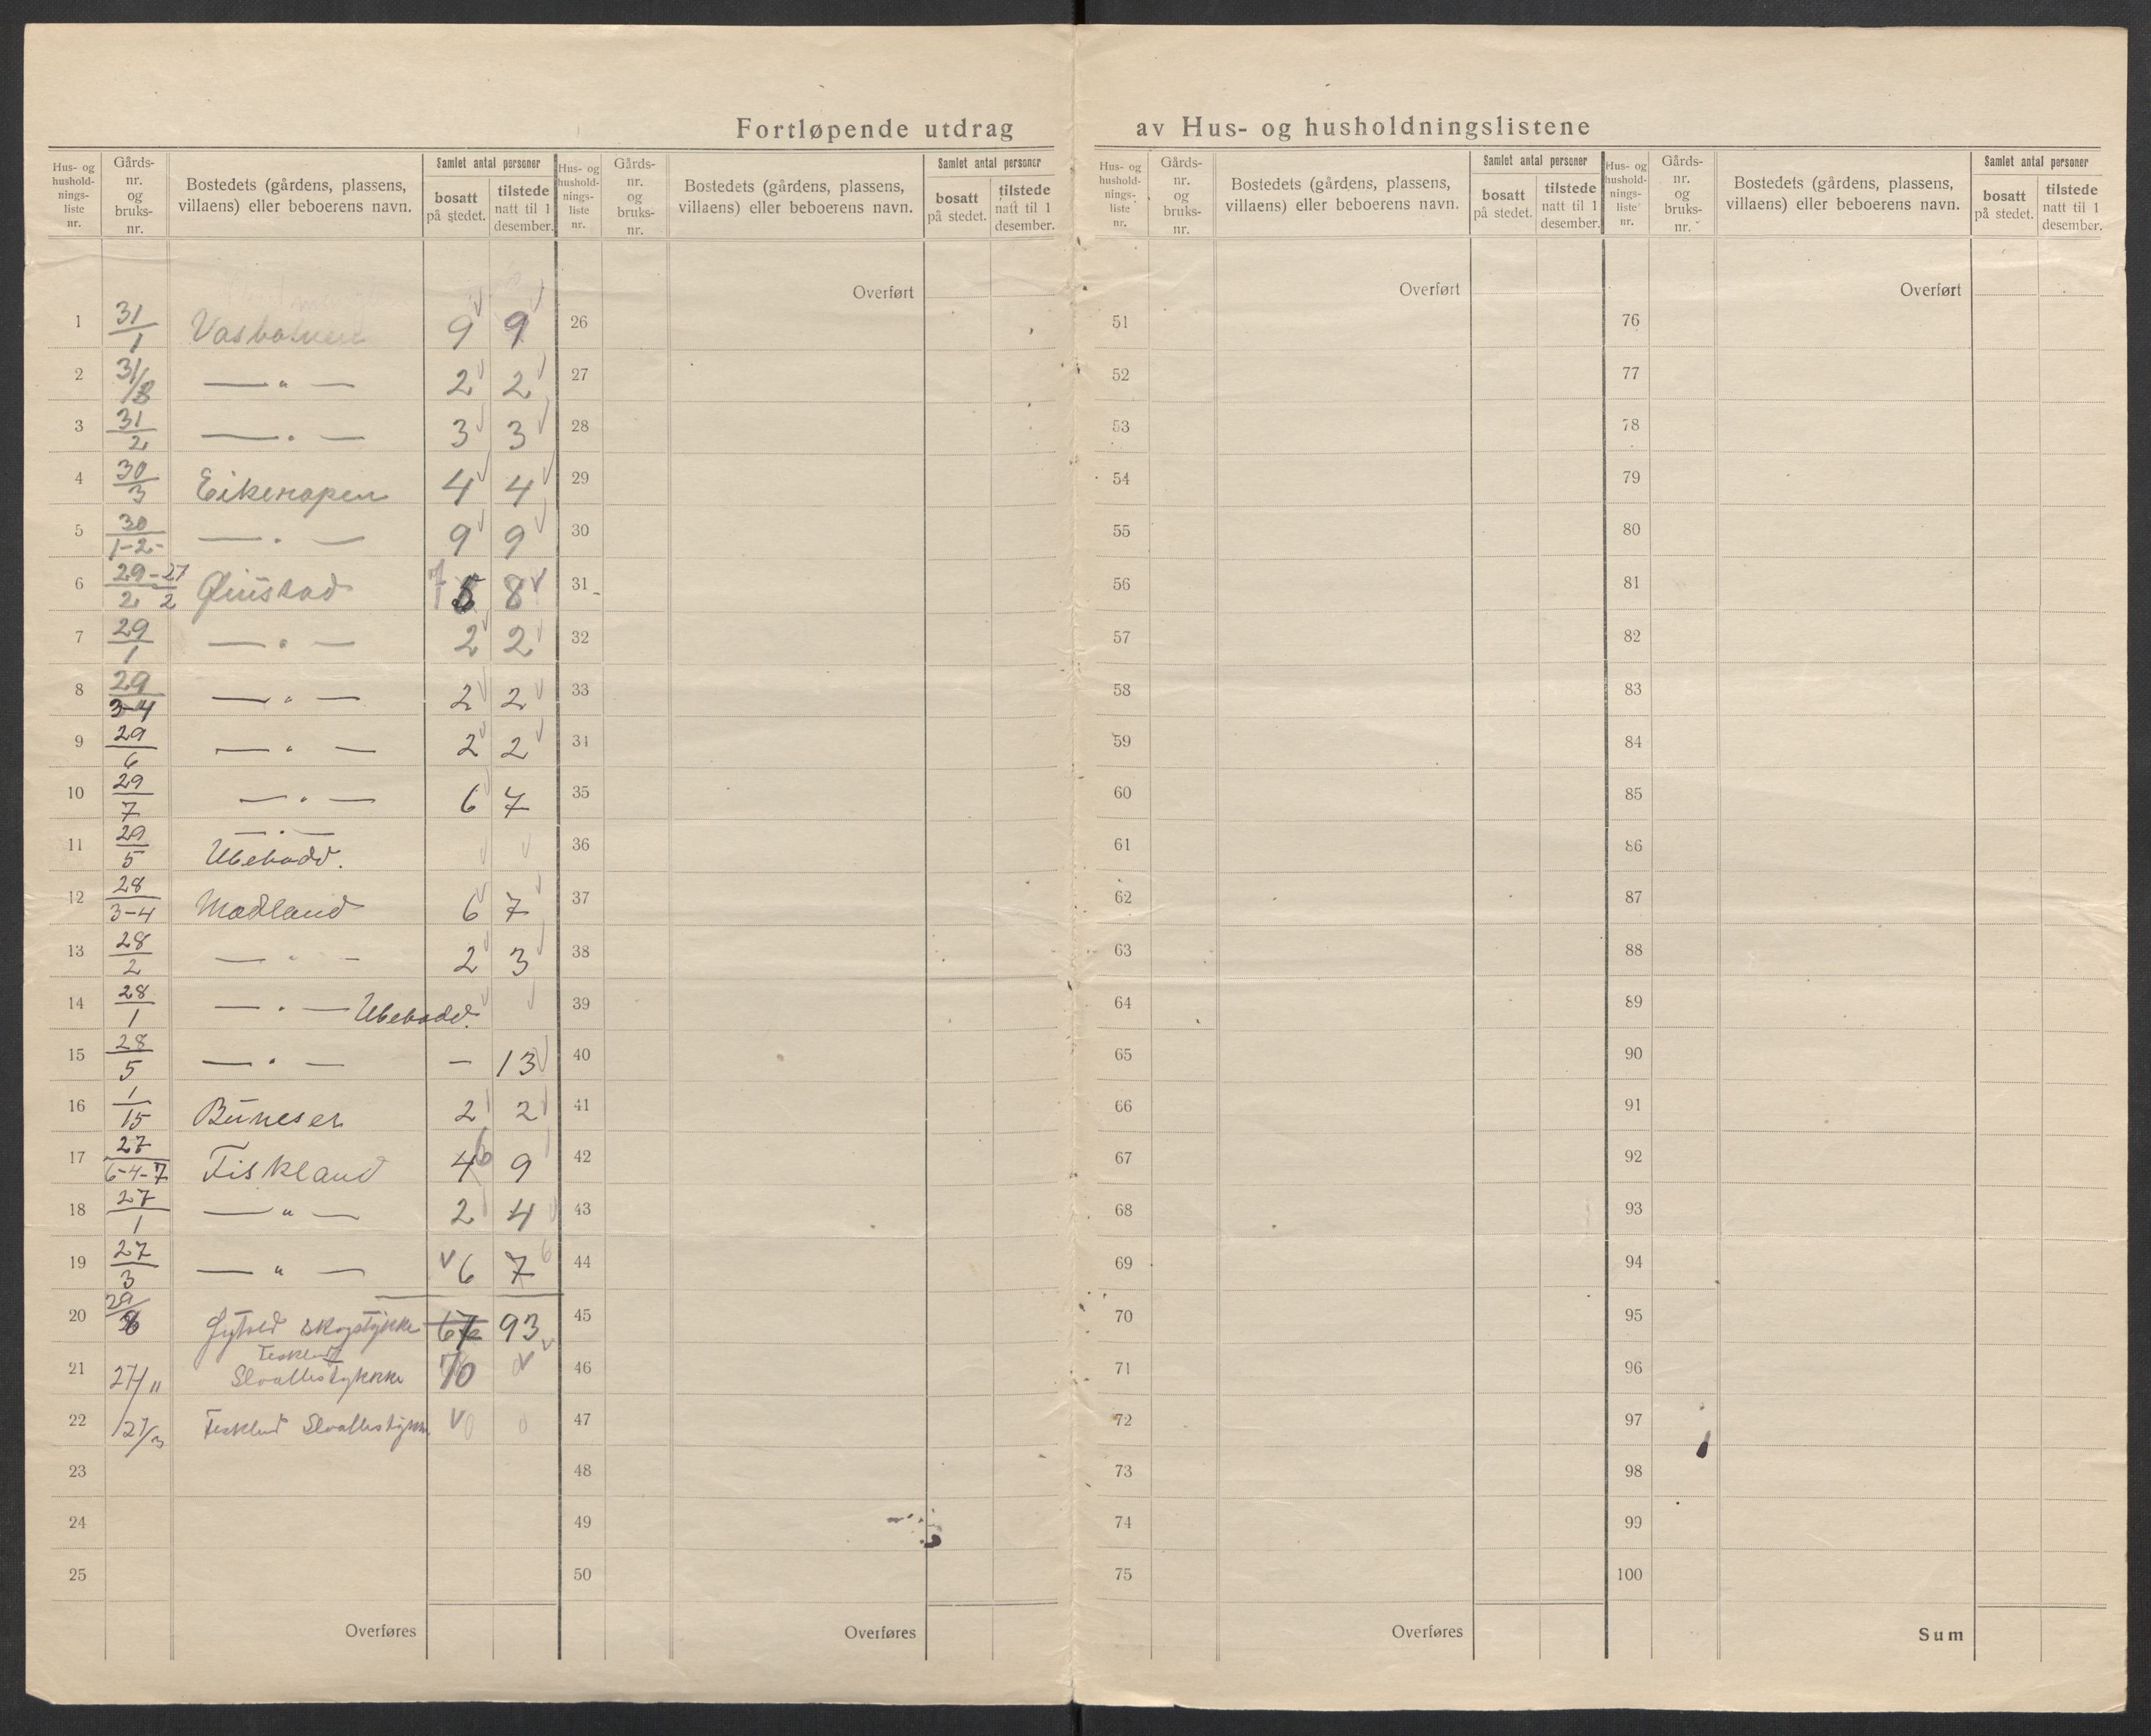 Fortløpende utdrag av Hus- og husholdningslistene
Hus- og hushold-nings-liste nr. Gårds-nr. og bruks-nr. Bostedets (gårdens, plassens, villaens) eller beboerens navn. Samlet antal personer bosatt på stedet. tilstede natt til 1 desember.
Hus- og hushold-nings-liste nr. Gårds-nr. og bruks-nr. Bostedets (gårdens, plassens, villaens) eller beboerens navn. Samlet antal personer bosatt på stedet. tilstede natt til 1 desember.
Hus- og hushold-nings-liste nr. Gårds-nr. og bruks-nr. Bostedets (gårdens, plassens, villaens) eller beboerens navn. Samlet antal personer bosatt på stedet. tilstede natt til 1 desember.
Hus- og hushold-nings-liste nr. Gårds-nr. og bruks-nr. Bostedets (gårdens, plassens, villaens) eller beboerens navn. Samlet antal personer bosatt på stedet. tilstede natt til 1 desember.
Overført Overført Overført
1 31/1 9 9 26 51 76
2 31/8 — " — 2 2 27 52 77
3 31/2 — " — 3 3 28 53 78
4 30/3 Eikerapen 4 4 29 54 79
5 30/1-2- — " — 9 9 30 55 80
6 29/2 - 27/2 Øiustad 7 8 31 56 81
7 29/1 — " — 2 2 32 57 82
8 29/3-4 — " — 2 2 33 58 83
9 29/6 — " — 2 2 34 59 84
10 29/7 — " — 6 7 35 60 85
11 29/5 — " — Ubebodd. 36 61 86
12 28/3-4 Madland 6 7 37 62 87
13 28/2 — " — 2 3 38 63 88
14 28/1 — " — Ubebodd. 39 64 89
15 28/5 — " — — 13 40 65 90
16 1/15 Buneser 2 2 41 66 91
17 27/6-4-7 Fiskland 4 6 9 42 67 92
18 27/1 — " — 2 4 43 68 93
19 27/3 — " — 6 7 6 44 69 94
20 29/8 skogstykke 67 93 45 70 95
21 27/11 70 46 71 96
22 27/3 0 0 47 72 97
23 48 73 98
24 49 74 99
25 50 75 100
Overføres Overføres Overføres Sum